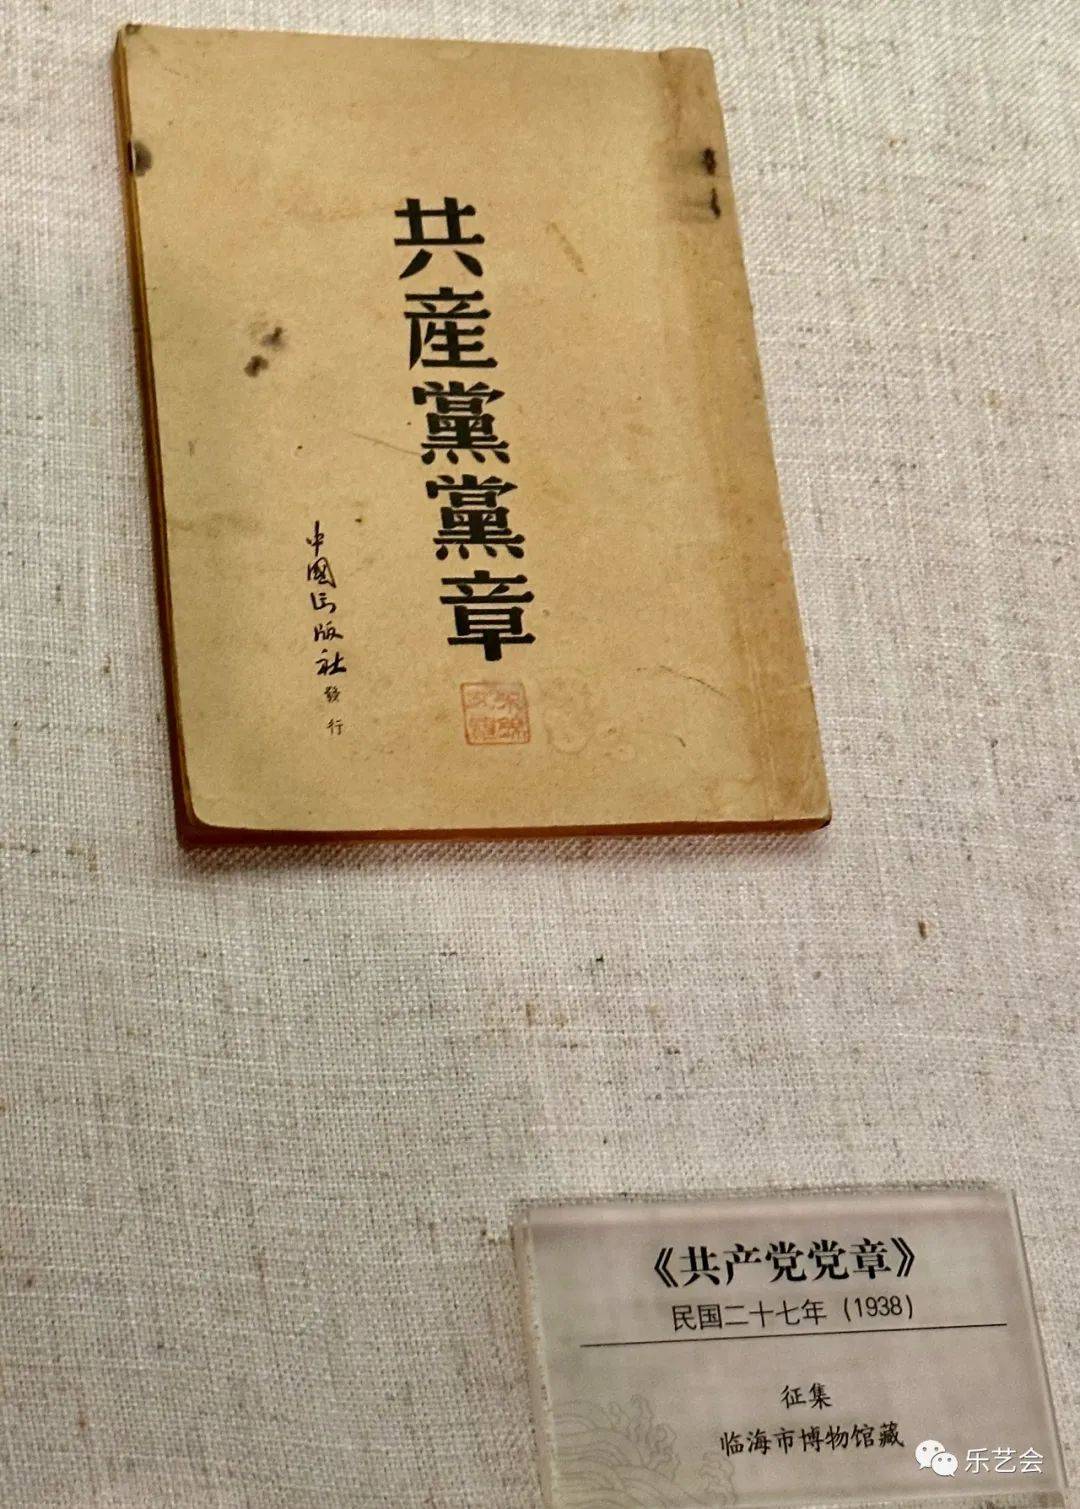 共產黨黨章
中國出版社發行
《共产党党章》
民国二十七年（1938）
征集
临海市博物馆藏
乐艺会